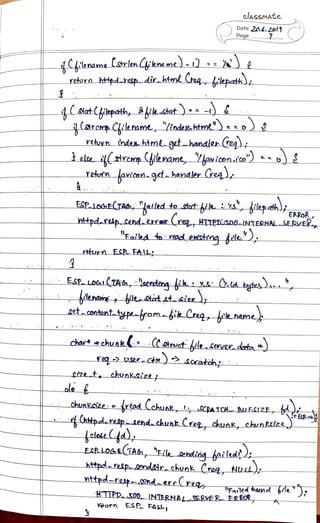 classmate
Date 20.6.2019
Page 7
if (filename [strlen (filename) - 1] == '/') {
return httpd_resp_dir_html (req, filepath);
}
if ( stat (filepath, &file_stat) == -1) {
if (strcmp (filename, "/index.html") == 0) {
return index_html_get_handler (req);
} else if (strcmp (filename, "/favicon.ico") == 0) {
return favicon_get_handler (req);
}
ESP_LOGE (TAG, "failed to stat file : %s", filepath);
httpd_resp_send_error (req, HTTPD_500_INTERNAL_SERVER_
ERROR,
"Failed to read existing file");
return ESP_FAIL;
}
ESP_LOGI (TAG, "sending file : %s (%ld bytes)...",
filename, file_stat.st_size);
set_content_type_from_file (req, filename);
char* chunk = ((struct file_server_data *)
req -> user_ctx) -> scratch;
size_t chunksize;
do {
chunksize = fread (chunk, 1, SCRATCH_BUFSIZE, fd);
if (httpd_resp_send_chunk (req, chunk, chunksize)
fclose (fd);
ESP_LOGE (TAG, "File sending failed!");
httpd_resp_sendstr_chunk (req, NULL);
httpd_resp_send_err (req,
HTTPD_500_INTERNAL_SERVER_ERROR,
"Failed to send file");
return ESP_FAIL;
}